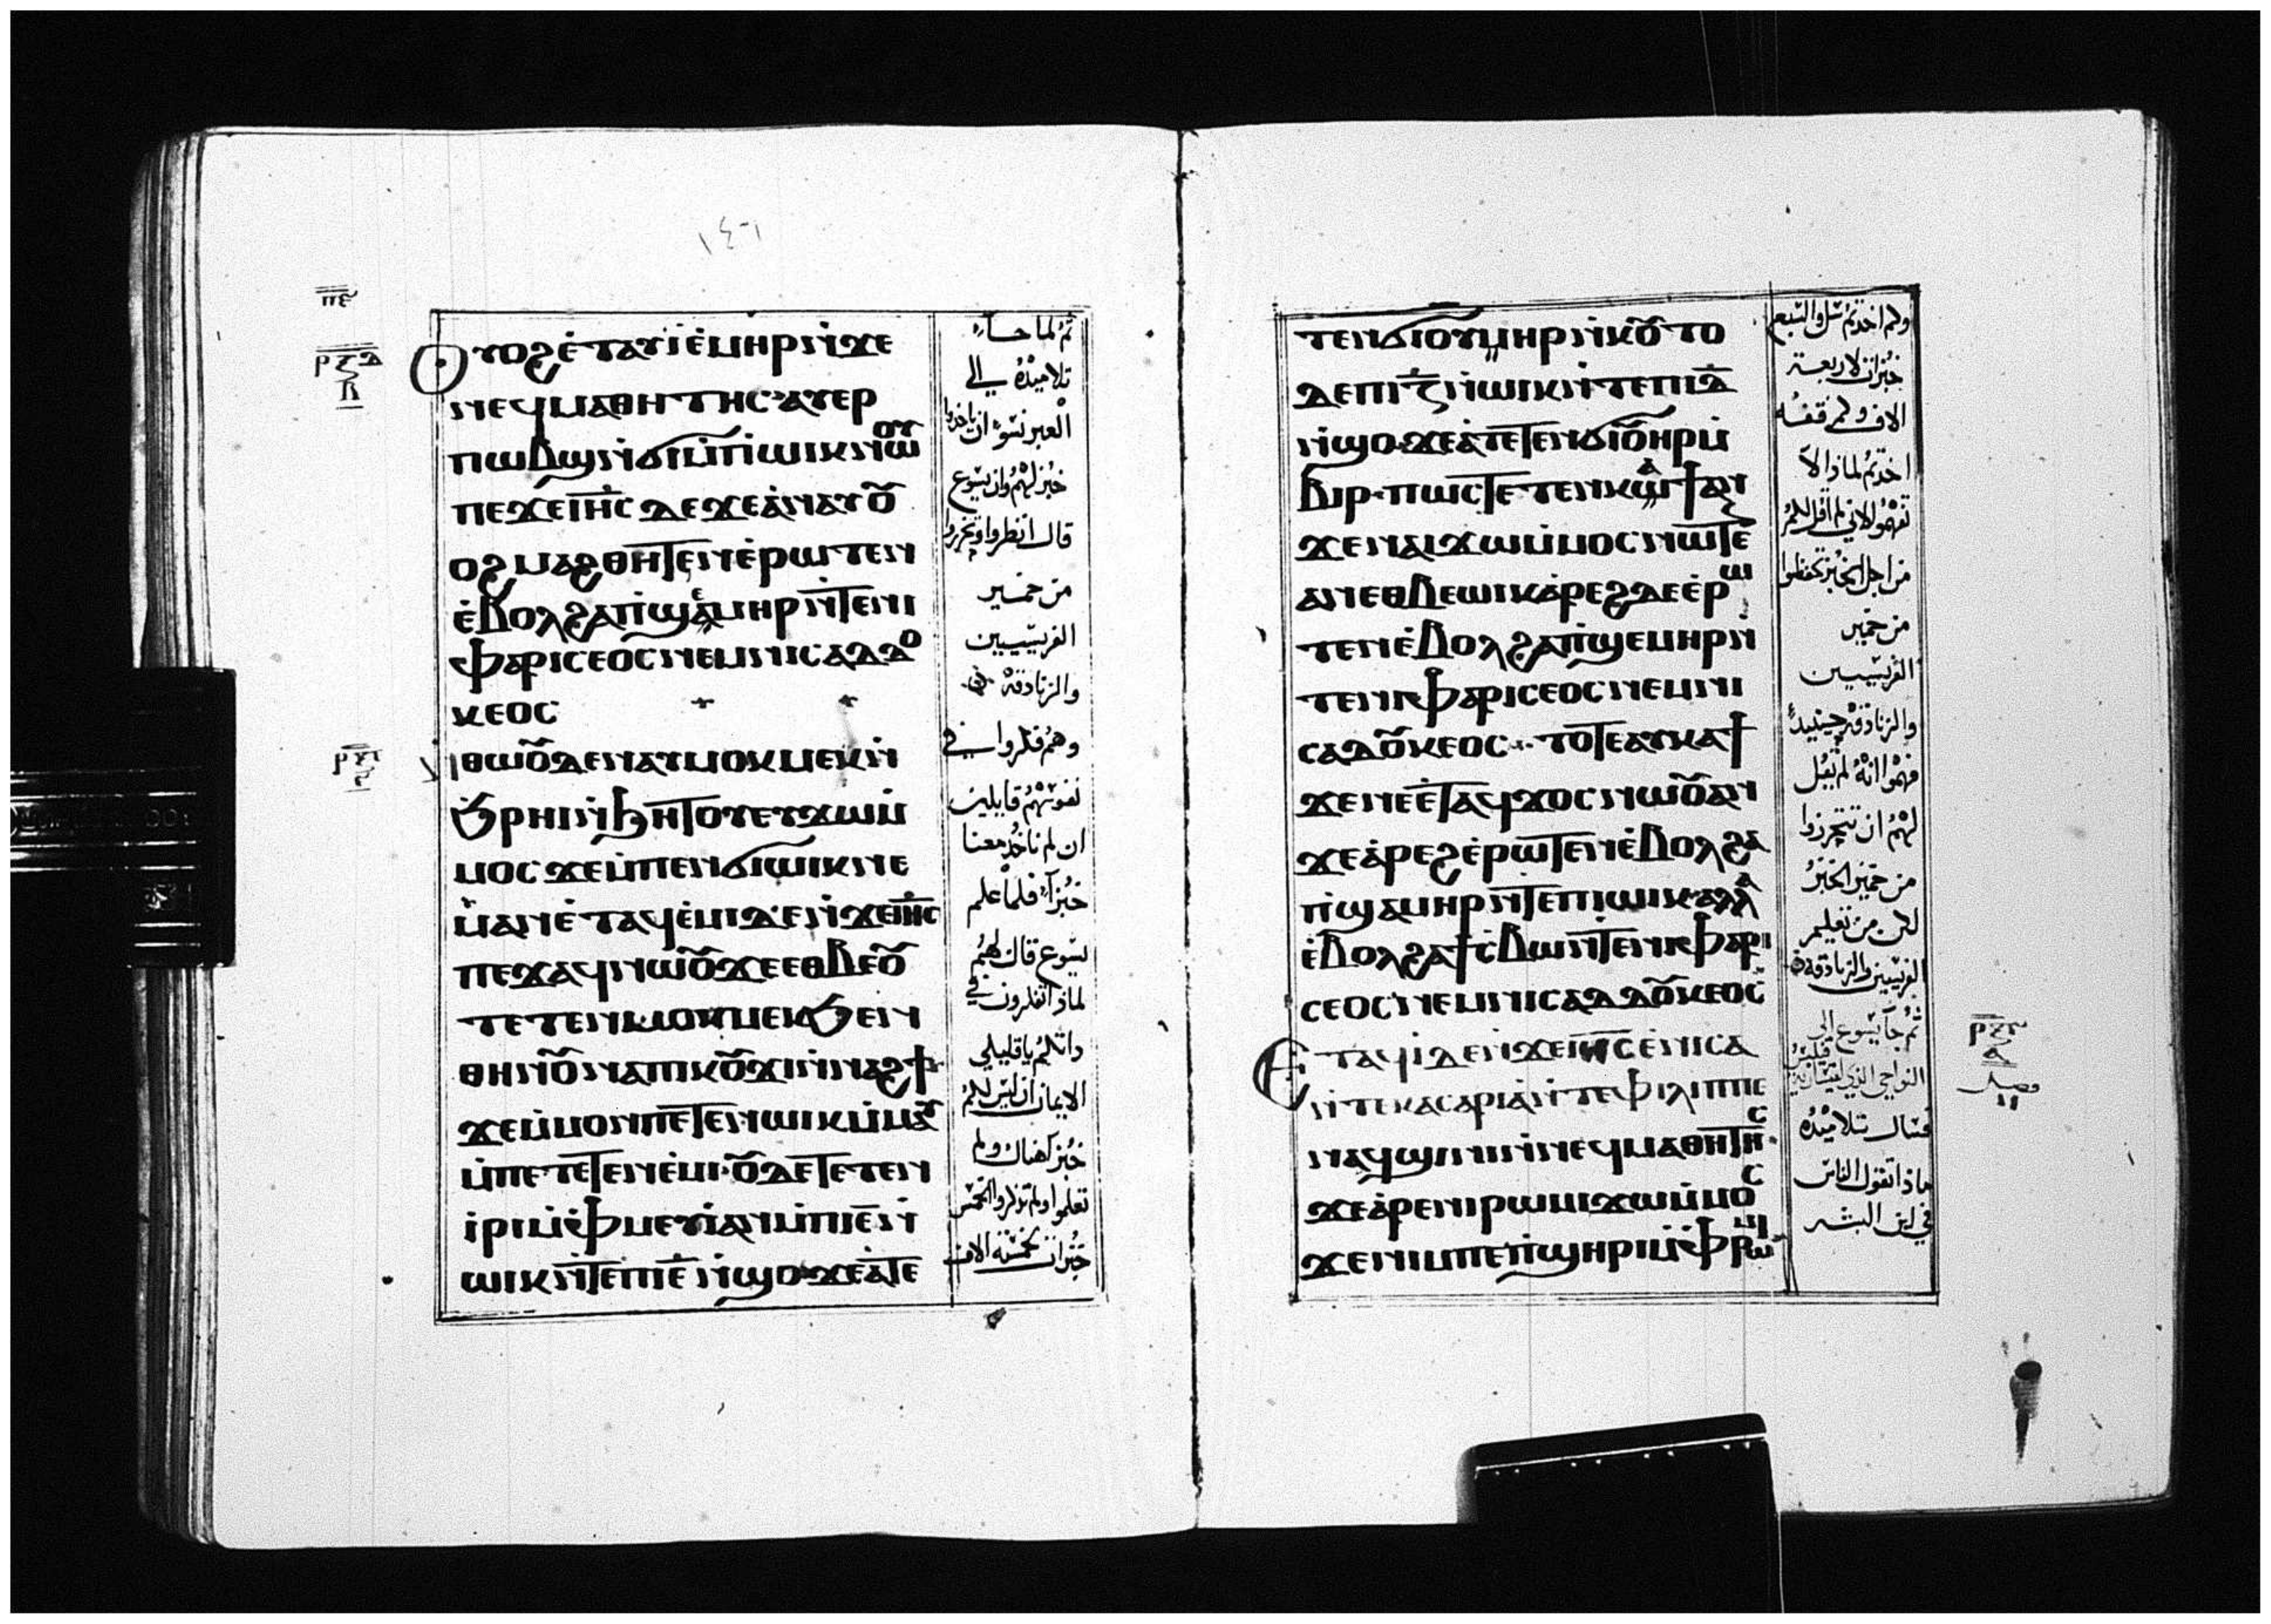 ١٤٦
ⲡ̅ⲉ̅
ⲣ̅ⲝ̅ⲇ̅
ⲃ
Ⲟⲩⲟϩ ⲉ̀ⲧⲁⲩⲓ̀ ⲉ̀ⲙⲏⲣ ⲛ̀ϫⲉ
ⲛⲉϥⲙⲁⲑⲏⲧⲏⲥ ⲁⲩⲉⲣ
ⲡⲱⲃϣ ⲛ̀ϭⲓⲙ̀ⲡ̀ⲱⲓⲕ ⲛⲱⲟⲩ
ⲡⲉϫⲉ ⲓⲏ̅ⲥ̅ ⲇⲉ ϫⲉ ⲁ̀ⲛⲁⲩⲟ̅
ⲟϩ ⲙⲁϩⲑⲏⲧⲉⲛ ⲉ̀ⲣⲱⲧⲉⲛ
ⲉ̀ⲃⲟⲗϩⲁ ⲡ̀ϣⲉⲙⲏⲣ ⲛ̀ⲧⲉⲛⲓ
ⲫⲁⲣⲓⲥⲉⲟⲥ ⲛⲉⲙ ⲛⲓⲥⲁⲇⲇⲟ
ⲕⲉⲟⲥ
ⲛ̀ⲑⲱⲟ̅ ⲇⲉ ⲛⲁⲩⲙⲟⲕⲙⲉⲕ ⲛ̀
ϧⲣⲏⲓ ⲛ̀ϧⲏⲧⲟⲩ ⲉⲩϫⲱⲙ̀
ⲙⲟⲥ ϫⲉ ⲙ̀ⲡⲉⲛϭⲓⲱⲓⲕ ⲛⲉ
ⲙ̀ⲁⲛ ⲉ̀ⲧⲁϥⲉ̀ⲙⲓ ⲇⲉ ⲛ̀ϫⲉ ⲓⲏ̅ⲥ̅
ⲡⲉϫⲁϥ ⲛⲱⲟ̅ ϫⲉ ⲉⲑⲃⲉⲟ̅
ⲧⲉⲧⲉⲛⲙⲟⲕⲙⲉⲕ ϧⲉⲛ
ⲑⲏⲛⲟ̅ ⲛⲁⲡⲓⲕⲟ̅ϫⲓ ⲛ̀ⲛⲁϩϯ
ϫⲉ ⲙ̀ⲙⲟⲛⲡⲉⲧⲉⲛⲱⲓⲕ ⲙ̀ⲙⲁⲩ
ⲙ̀ⲡⲉⲧⲉⲧⲉⲛⲉ̀ⲙⲓ ⲟ̅ⲇⲉ ⲧⲉⲧⲉⲛ
ⲓ̀ⲣⲓ ⲙ̀ⲫⲙⲉⲩⲓ̀ ⲁⲛ ⲙ̀ⲡⲓⲉ̅ ⲛ̀
ⲱⲓⲕ ⲛ̀ⲧⲉ ⲡⲓⲉ̅ ⲛ̀ϣⲟ ϫⲉ ⲁ̀ⲧⲉ
ثم لما جاء
تلاميذه الي
العبر نسوا ان ياخذوا
خبز لهم وان يسوع
قال انظروا وتحرزوا
من خمير
الفريسيين
والزنادقه
وهم فكروا في
نفوسهم قايلين
ان لم ناخذ معنا
خبزا فلما علم
يسوع قال لهم
لماذا تفكرون في
ذاتكم يا قليلي
الايمان ان ليس لكم
خبز كهناك ولم
تعلموا ولم تذكروا الخمس
خبزات لخمسة الاف
ⲧⲉⲛϭⲓ ⲟⲩⲏⲣ ⲛ̀ⲕⲟ̅ⲧ ⲟ
ⲇⲉ ⲡⲓⲍ̅ ⲛ̀ⲱⲓⲕ ⲛ̀ⲧⲉ ⲡⲓⲇ̅
ⲛ̀ϣⲟ ϫⲉ ⲁ̀ⲧⲉⲧⲉⲛϭⲓ ⲟ̅ⲏⲣ ⲙ̀
ⲃⲓⲣ ⲡⲱⲥ ⲧⲉⲧⲉⲛⲕⲁϯ ⲁⲛ
ϫⲉ ⲛⲁⲓϫⲱ ⲙ̀ⲙⲟⲥ ⲛⲱⲧⲉ
ⲁⲛ ⲉⲑⲃⲉ ⲱⲓⲕ ⲁ̀ⲣⲉϩ ⲇⲉ ⲉ̀ⲣⲱ
ⲧⲉⲛ ⲉ̀ⲃⲟⲗϩⲁ ⲡ̀ϣⲉⲙⲏⲣ ⲛ̀
ⲧⲉ ⲛⲓⲫⲁⲣⲓⲥⲉⲟⲥ ⲛⲉⲙ ⲛⲓ
ⲥⲁⲇⲟ̅ⲕⲉⲟⲥ ⲧⲟⲧⲉ ⲁⲩⲕⲁϯ
ϫⲉ ⲛⲉ ⲉ̀ⲧⲁϥϫⲟⲥ ⲛⲱⲟ̅ ⲁⲛ
ϫⲉ ⲁ̀ⲣⲉϩ ⲉ̀ⲣⲱⲧⲉⲛ ⲉ̀ⲃⲟⲗϩⲁ
ⲡ̀ϣⲁⲙⲏⲣ ⲛ̀ⲧⲉ ⲡⲓⲱⲓⲕ ⲁⲗⲗⲁ
ⲉ̀ⲃⲟⲗϩⲁ ϯⲥ̀ⲃⲱ ⲛ̀ⲧⲉ ⲛⲓⲫⲁⲣⲓ
ⲥⲉⲟⲥ ⲛⲉⲙ ⲛⲓⲥⲁⲇⲇⲟ̅ⲕⲉⲟⲥ
Ⲉⲧⲁϥⲓ̀ ⲇⲉ ⲛ̀ϫⲉ ⲓⲏ̅ⲥ̅ ⲉ̀ⲛⲓⲥⲁ
ⲛ̀ⲧⲉ ⲕⲁⲥⲁⲣⲓⲁ̀ ⲛ̀ⲧⲉ ⲫⲓⲗⲓⲡⲡⲉ
ⲛⲁϥϣⲓⲛⲓ ⲛ̀ⲛⲉϥⲙⲁⲑⲏⲧⲏⲥ
ϫⲉ ⲁ̀ⲣⲉ ⲛⲓⲣⲱⲙⲓ ϫⲱ ⲙ̀ⲙⲟⲥ
ϫⲉ ⲛⲓⲙ ⲡⲉ ⲡ̀ϣⲏⲣⲓ ⲙ̀ⲫⲣⲱⲙⲓ
وكم اخذتم سل والسبع
خبزات لاربعة
الاف وكم قفه
اخذتم لماذا لا
تفهموا لاني لم اقل لكم
من اجل الخبز تحفظوا
من خمير
الفريسيين
والزنادقه حينيذ
فهموا انه لم يقل
لهم ان تتحرزوا
من خمير الخبز
لكن من تعليم
الفريسيين والزنادقه
ثم جا يسوع الي
النواحي الذي لقيسارية فيلبس
فسال تلاميذه
ماذا تقول الناس
في ابن البشر
فصل